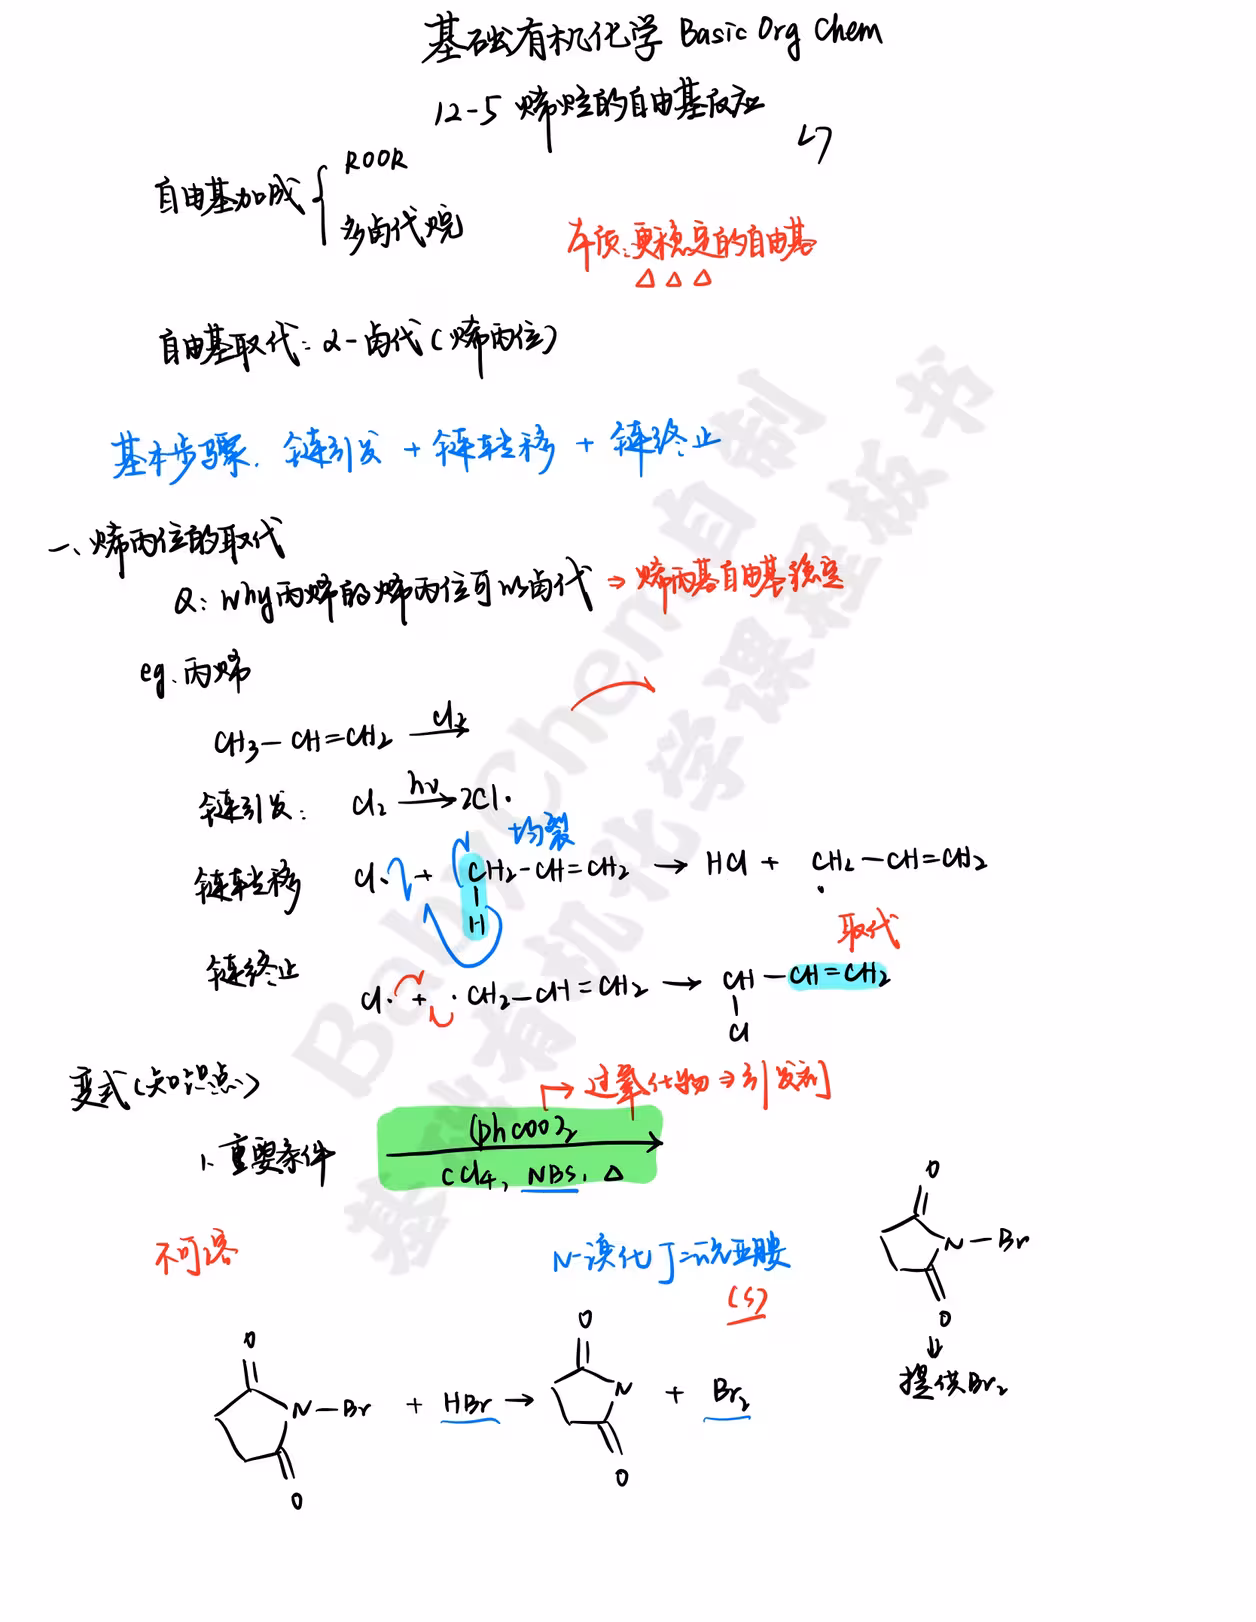 基础有机化学 Basic Org Chem
12-5 烯烃的自由基反应
自由基加成 { ROOR
多卤代烷
本质:更稳定的自由基
△ △ △
自由基取代: α-卤代(烯丙位)
基本步骤. 链引发 + 链转移 + 链终止
一、烯丙位的取代
Q: Why丙烯的烯丙位可以卤代 ⇒ 烯丙基自由基稳定
eg. 丙烯
CH3—CH=CH2 Cl2→
链引发: Cl2 hν→ 2Cl·
均裂
链转移 Cl· + CH2-CH=CH2 → HCl + CH2—CH=CH2
H
·
取代
链终止 Cl· + ·CH2—CH=CH2 → CH—CH=CH2
Cl
变式(知识点)
→ 过氧化物⇒引发剂
1、重要条件 (PhCOO)2
CCl4, NBS, △
不可溶
N-溴代丁二酰亚胺
(s)
O
N—Br
O
⇓
提供Br2
O
N—Br + HBr → N + Br2
O
O
O
BabyChem自制
基础有机化学课程板书